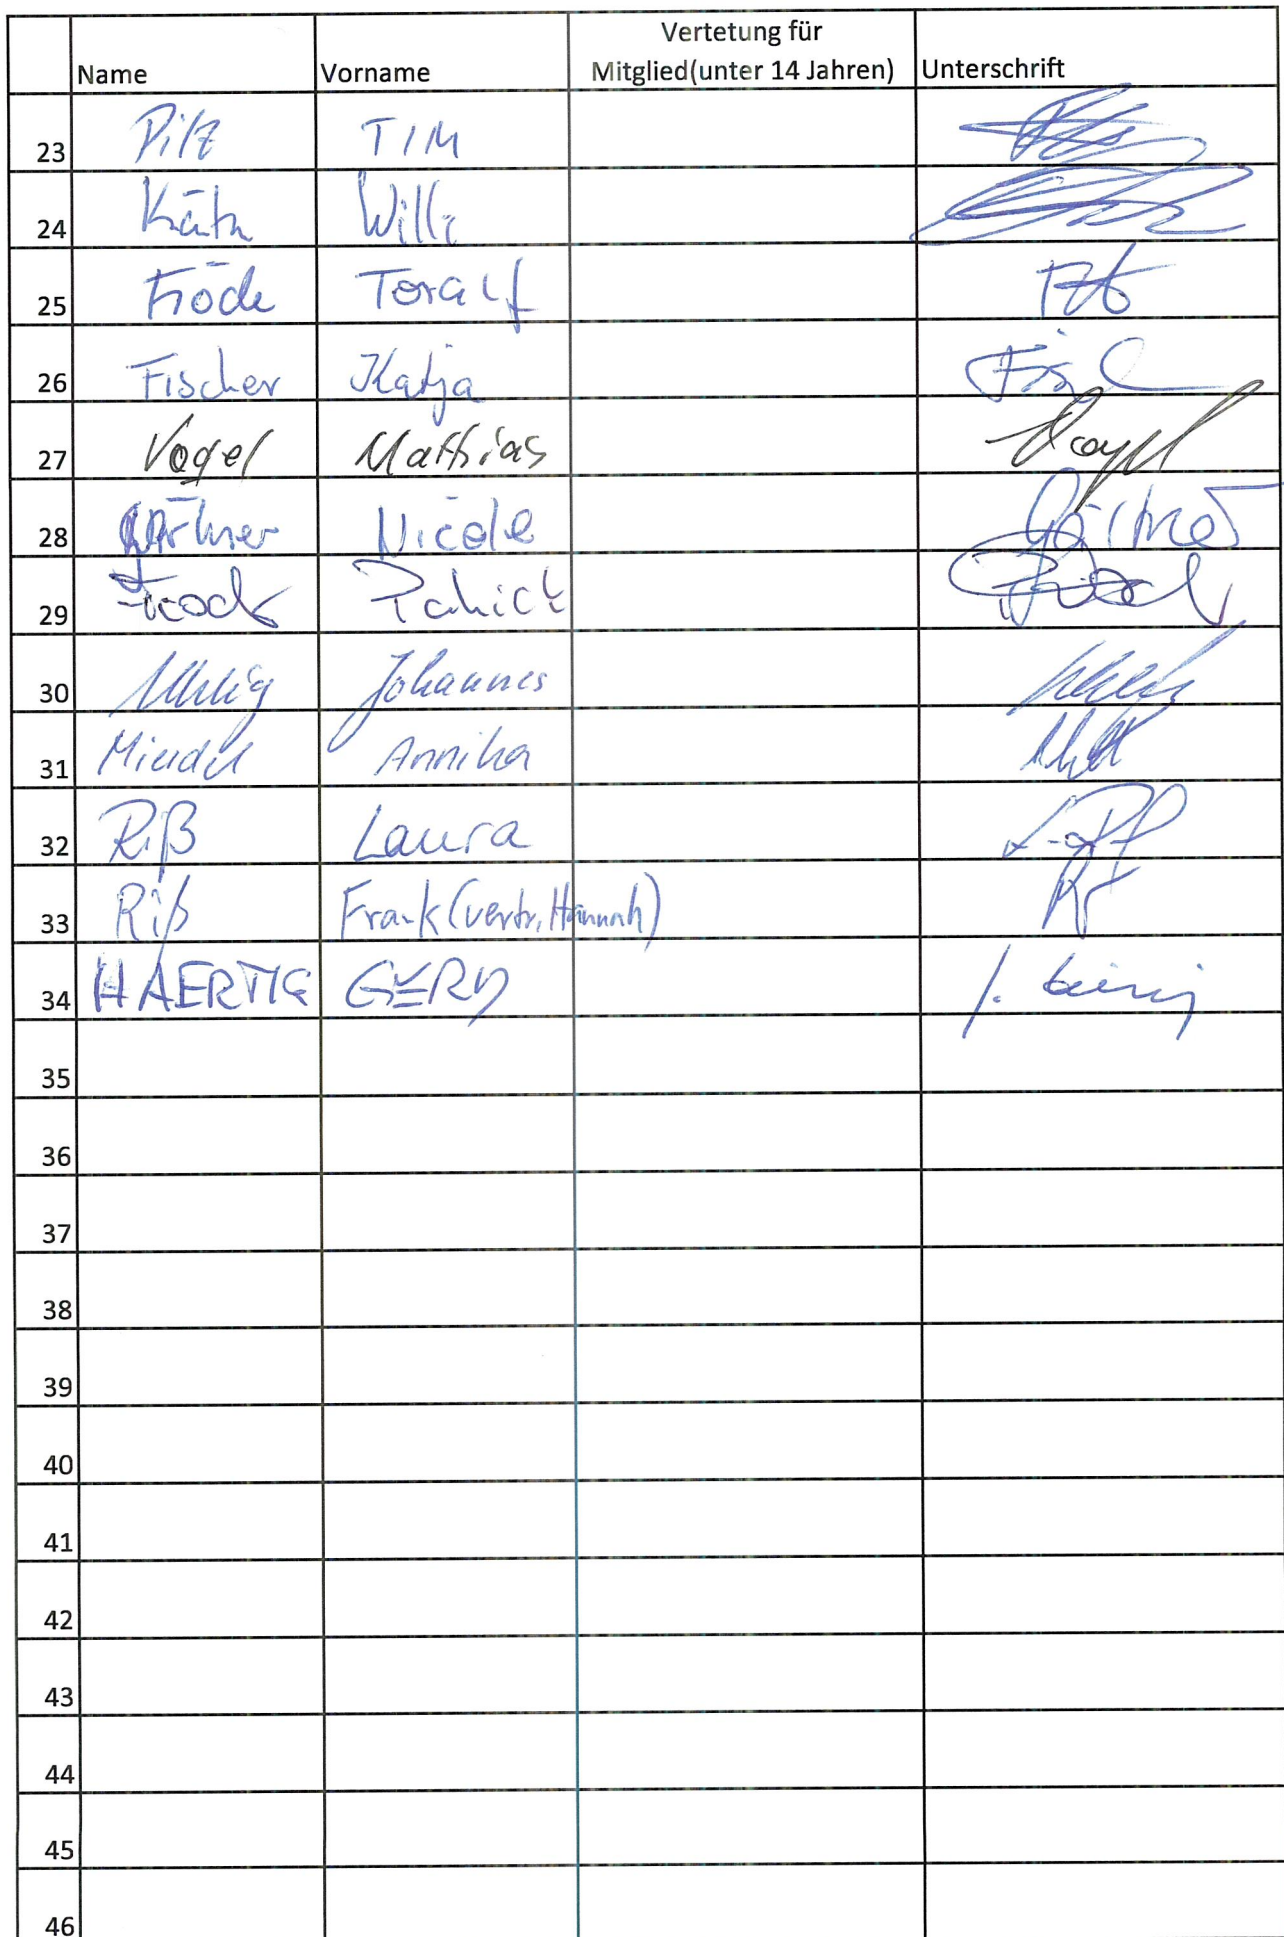 Vertetung für
Name Vorname Mitglied(unter 14 Jahren) Unterschrift
23 Pilz TIM
24 Willi
25 Fröde Toralf
26 Fischer Katja
27 Vogel Matthias
28 Gärtner Nicole Gärtner
29 Patrick
30 Uhlig Johannes
31 Annika
32 Riß Laura
33 Riß Frank (vertr. Hannah)
34 HAERTIG GERD
35
36
37
38
39
40
41
42
43
44
45
46